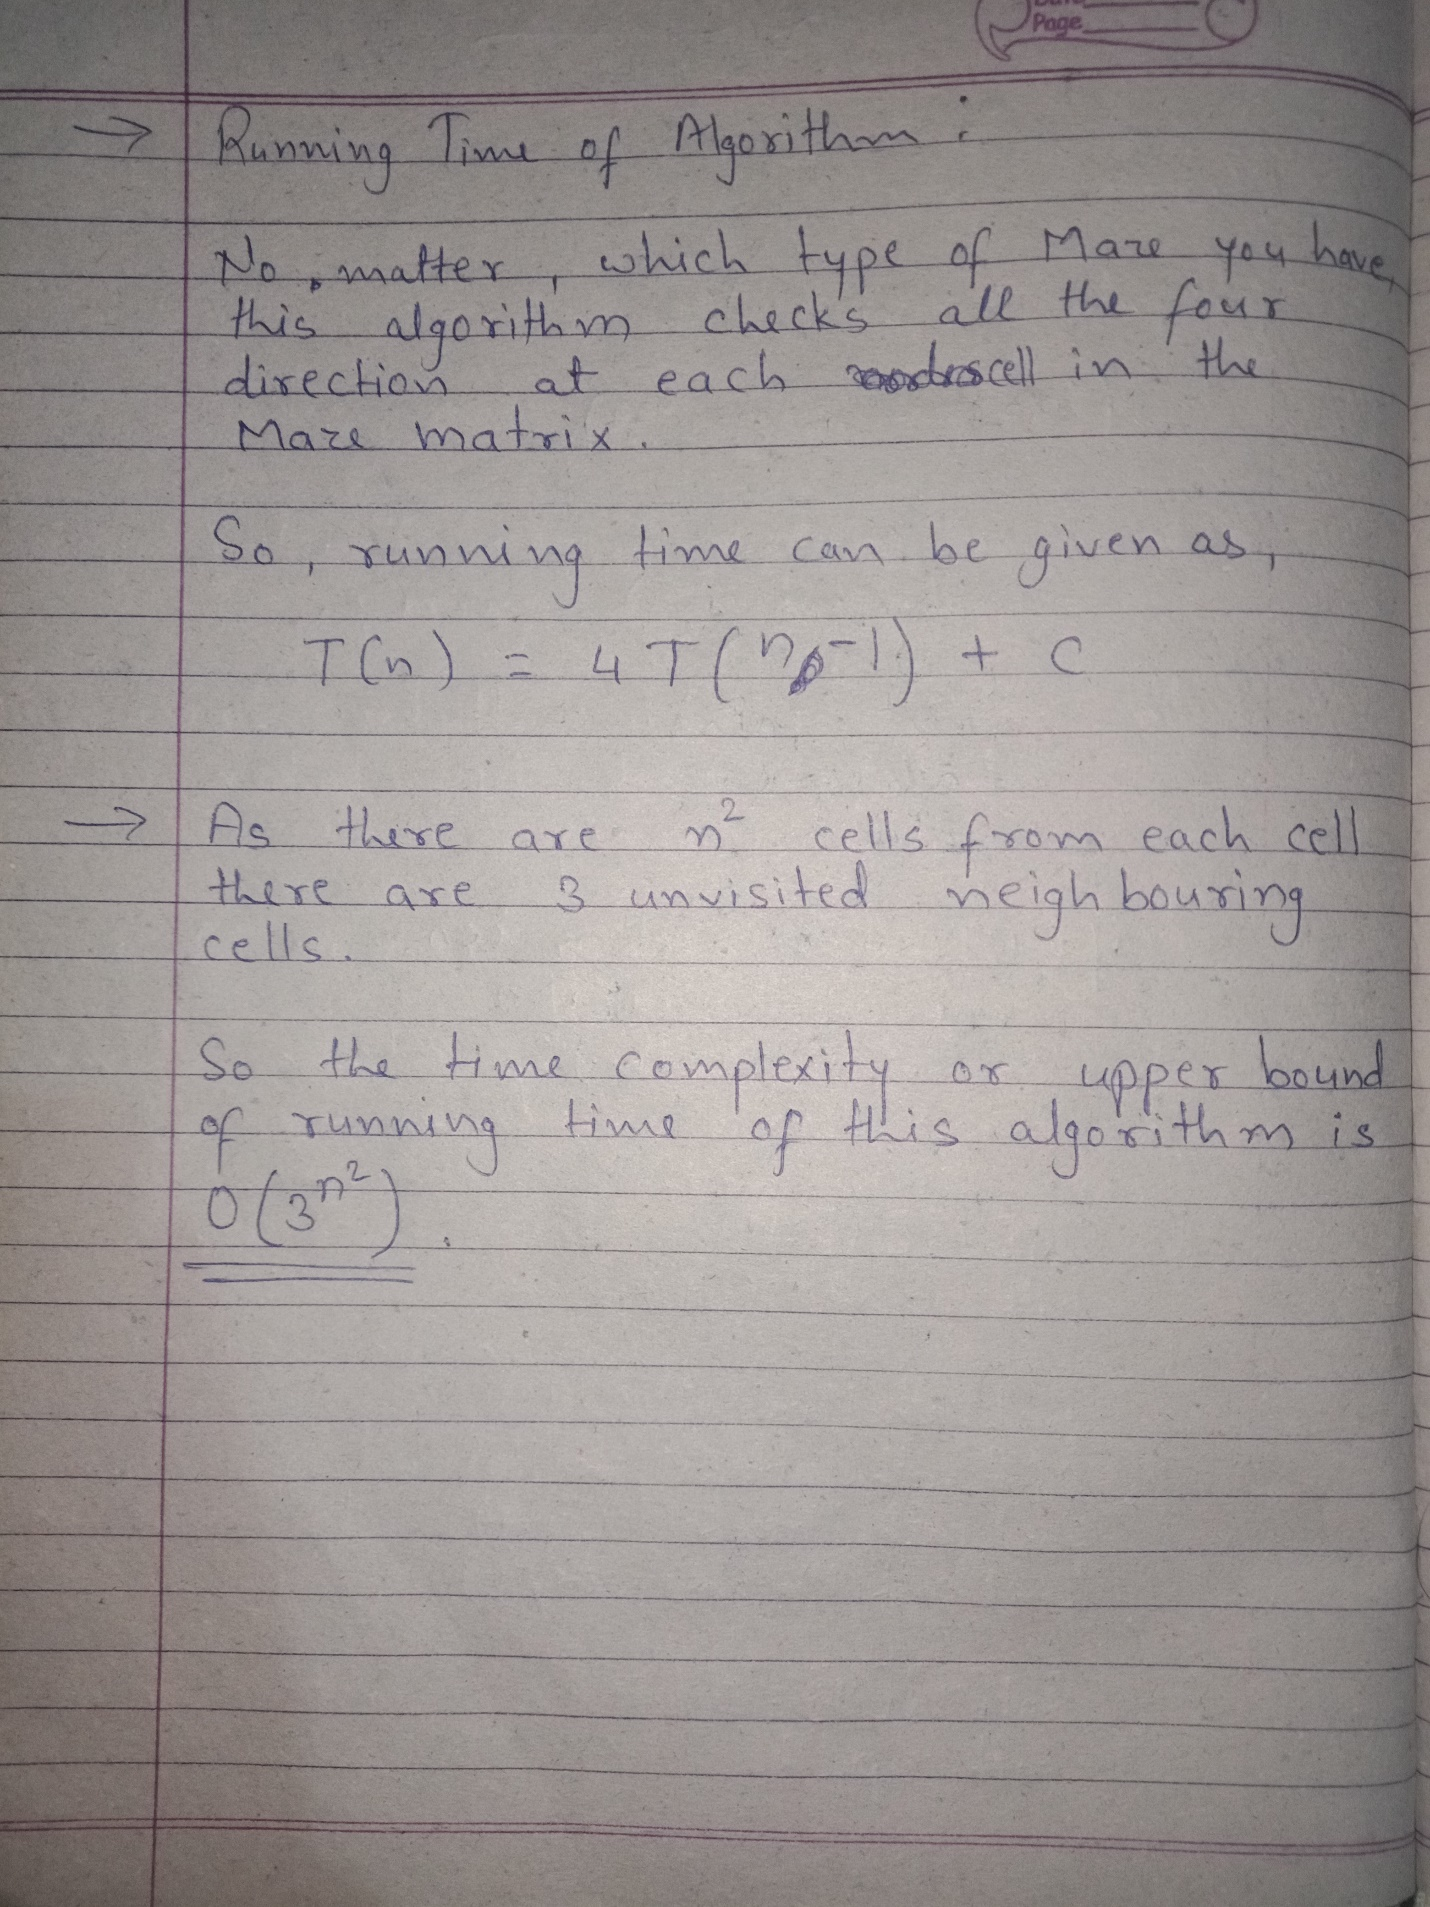 Page
→ Running Time of Algorithm :
No, matter, which type of Maze you have,
this algorithm checks all the four
direction at each cell in the
Maze matrix.
So, running time can be given as,
T(n) = 4T(n-1) + C
→ As there are n² cells from each cell
there are 3 unvisited neighbouring
cells.
So the time complexity or upper bound
of running time of this algorithm is
O(3^n²).